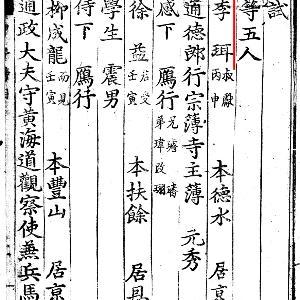 試
等五人
李珥 叔獻 丙申 本德水 居京
通德郎行宗簿寺主簿 元秀
感下 鴈行 兄璿 璠 弟瑋 故瑚
徐益 君受 壬寅 本扶餘 居恩
學生 震男
侍下 鴈行
柳成龍 而見 壬寅 本豐山 居京
通政大夫守黃海道觀察使兼兵馬